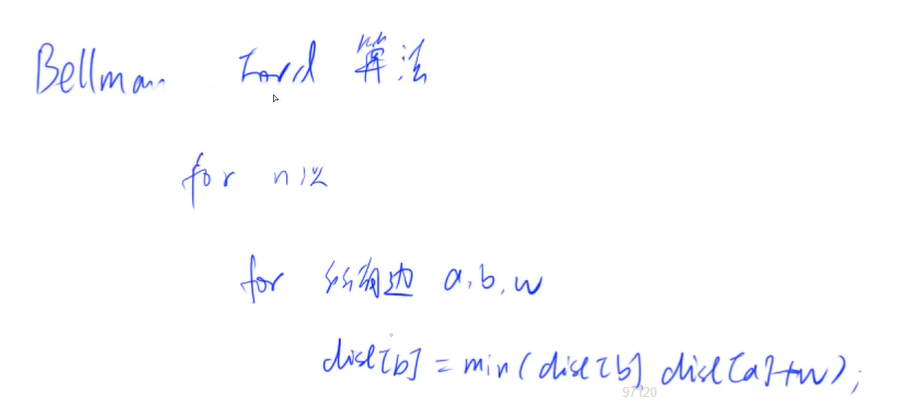 Bellman Ford 算法
for n次
for 所有边 a,b,w
dist[b] = min(dist[b] dist[a]+w);
97120